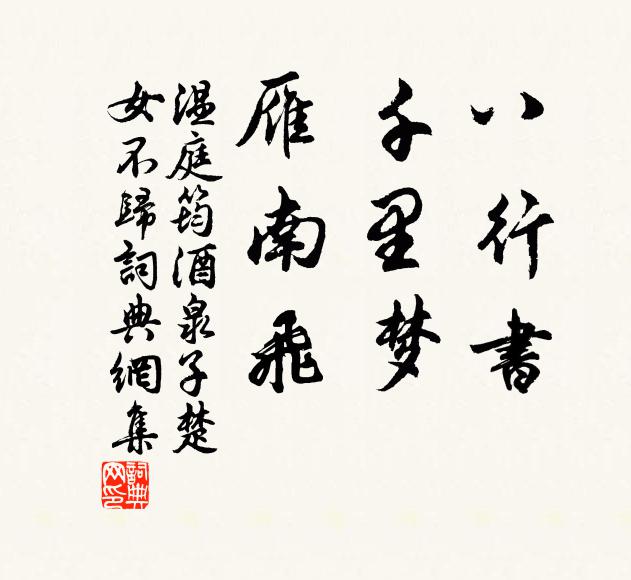 八行書
千里梦
雁南飛
温庭筠酒泉子楚
女不歸詞典網集
詞典网印